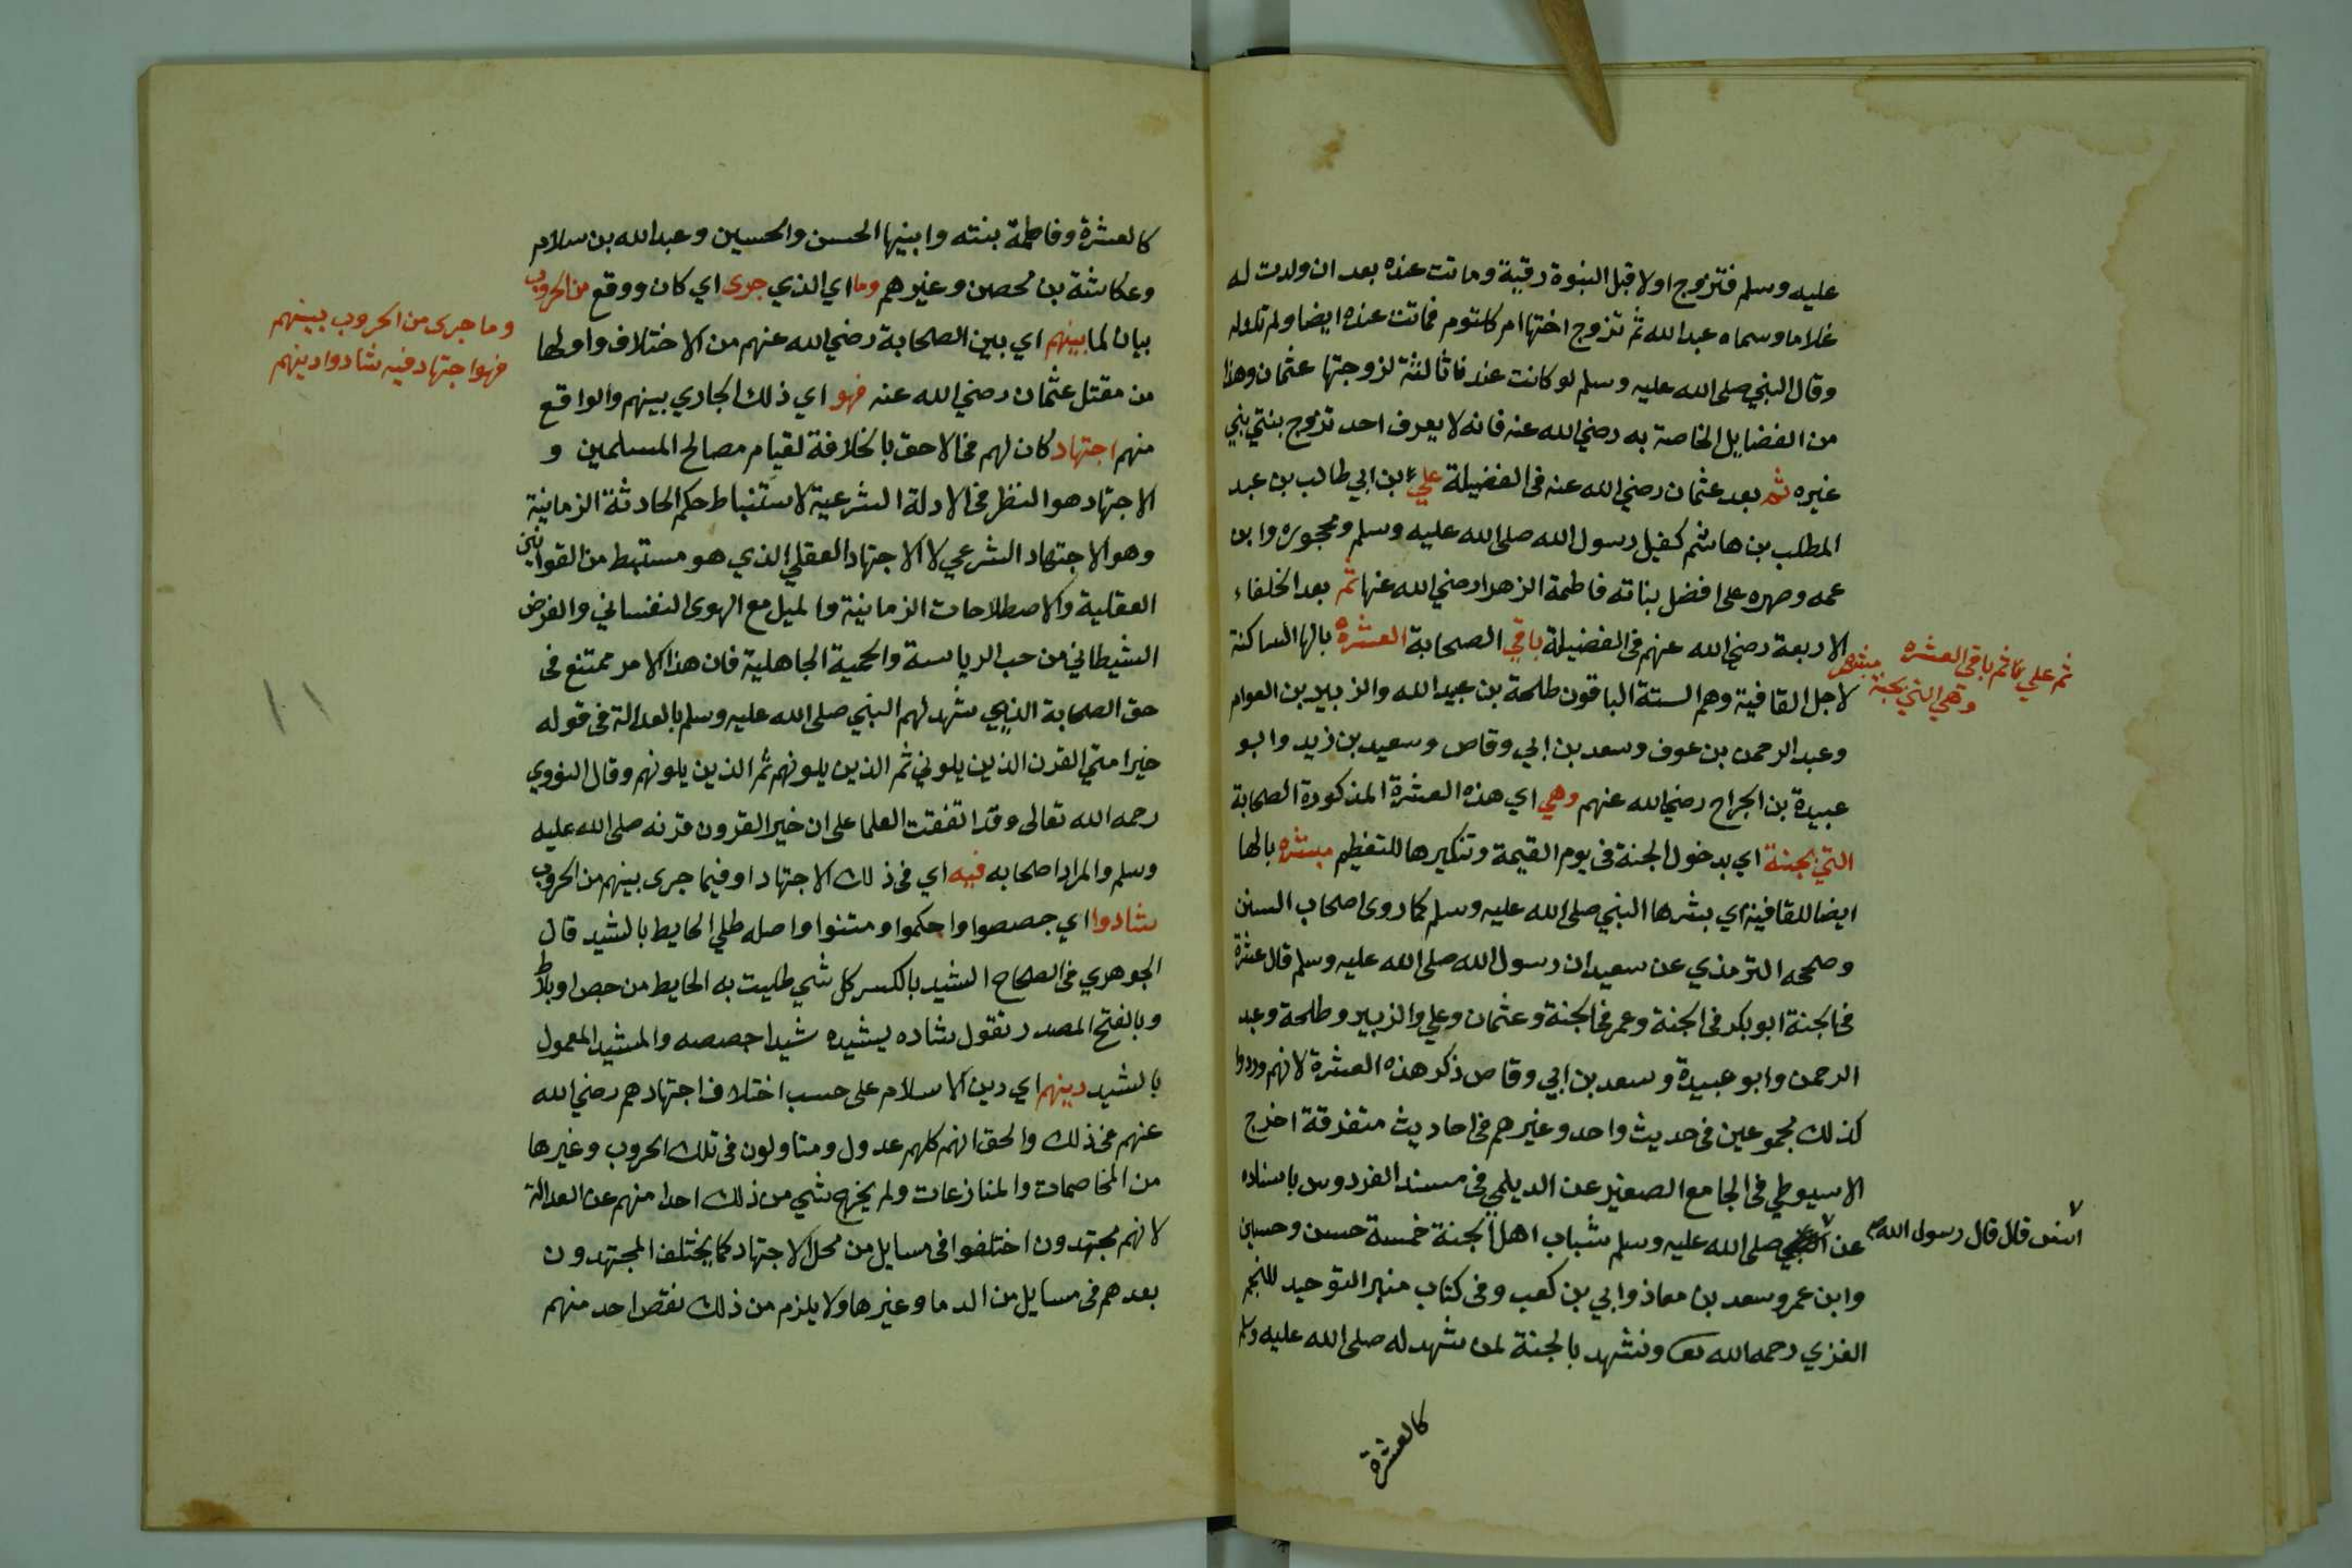 عليه وسلم فتزوج اولا قبل النبوة رقية وماتت عنده بعد ان ولدت له
غلاما وسماه عبد الله ثم تزوج اختها ام كلثوم فماتت عنده ايضا ولم تلد له
وقال النبي صلى الله عليه وسلم لو كانت عندنا ثالثة لزوجتها عثمان وهذا
من الفضايل الخاصة به رضي الله عنه فانه لا يعرف احد تزوج بنتي نبي
غيره ثم بعد عثمان رضي الله عنه في الفضيلة علي ابن ابي طالب بن عبد
المطلب بن هاشم كفيل رسول الله صلى الله عليه وسلم ومحجوره وابن
عمه وصهره على افضل بناته فاطمة الزهرا رضي الله عنها ثم بعد الخلفاء
الاربعة رضي الله عنهم في الفضيلة باقي الصحابة العشره بالها الساكنة
ثم علي ثم باقي العشره
وهي التي بجنة مبشره
لاجل القافية وهم الستة الباقون طلحة بن عبيد الله والزبير بن العوام
وعبد الرحمن بن عوف وسعد بن ابي وقاص وسعيد بن زيد وابو
عبيدة بن الجراح رضي الله عنهم وهي اي هذه العشرة المذكورة الصحابة
التي بجنة اي بدخول الجنة في يوم القيمة وتنكيرها للتعظيم مبشره بالها
ايضا للقافية اي بشرها النبي صلى الله عليه وسلم كما روى اصحاب السنن
وصححه الترمذي عن سعيد ان رسول الله صلى الله عليه وسلم قال عشرة
في الجنة ابو بكر في الجنة وعمر في الجنة وعثمان وعلي والزبير وطلحة وعبد
الرحمن وابو عبيدة وسعد بن ابي وقاص ذكر هذه العشرة لانهم وردوا
كذلك مجموعين في حديث واحد وغيرهم في احاديث متفرقة اخرج
الاسيوطي في الجامع الصغير عن الديلمي في مسند الفردوس باسناده
عن صلى الله عليه وسلم شباب اهل الجنة خمسة حسن وحسين
انس قال قال رسول الله
وابن عمر وسعد بن معاذ وابي بن كعب وفي كتاب منبر التوحيد للنجم
الغزي رحمه الله تعا ونشهد بالجنة لمن شهد له صلى الله عليه وسلم
كالعشرة
كالعشرة وفاطمة بنته وابنيها الحسن والحسين وعبد الله بن سلام
وعكاشة بن محصن وغيرهم وما اي الذي جرى اي كان ووقع من الحروب
بيان لما بينهم اي بين الصحابة رضي الله عنهم من الاختلاف واولها
وما جرى من الحروب بينهم
فهو اجتهاد فيه شادوا دينهم
من مقتل عثمان رضي الله عنه فهو اي ذلك الجاري بينهم والواقع
منهم اجتهاد كان لهم في الاحق بالخلافة لقيام مصالح المسلمين و
الاجتهاد هو النظر في الادلة الشرعية لاستنباط حكم الحادثة الزمانية
وهو الاجتهاد الشرعي لا الاجتهاد العقلي الذي هو مستنبط من القوانين
العقلية والاصطلاحات الزمانية والميل مع الهوى النفساني والغرض
الشيطاني من حب الرياسة والحمية الجاهلية فان هذا الامر ممتنع في
١١
حق الصحابة الذين شهد لهم النبي صلى الله عليه وسلم بالعدالة في قوله
خير امتي القرن الذين يلوني ثم الذين يلونهم ثم الذين يلونهم وقال النووي
رحمه الله تعالى وقد اتفقت العلما على ان خير القرون قرنه صلى الله عليه
وسلم والمراد اصحابه فيه اي في ذلك الاجتهاد او فيما جرى بينهم من الحروب
شادوا اي جصصوا واحكموا ومتنوا واصله طلي الحايط بالشيد قال
الجوهري في الصحاح الشيد بالكسر كل شي طليت به الحايط من جص او بلاط
وبالفتح المصدر تقول شاده يشيده شيدا جصصه والمشيد المعمول
بالشيد دينهم اي دين الاسلام على حسب اختلاف اجتهادهم رضي الله
عنهم في ذلك والحق انهم كلهم عدول ومتاولون في تلك الحروب وغيرها
من المخاصمات والمنازعات ولم يخرج شي من ذلك احدا منهم عن العدالة
لانهم مجتهدون اختلفوا في مسايل من محل الاجتهاد كما يختلف المجتهدون
بعدهم في مسايل من الدما وغيرها ولا يلزم من ذلك نقص احد منهم